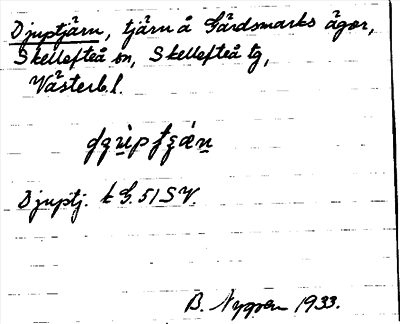 Djuptjärn, tjärn å Gärdsmarks ägor,
Skellefteå sn, Skellefteå tg,
Västerb.l.
Djuptj. k G. 51 SV.
B. Nygren 1933.